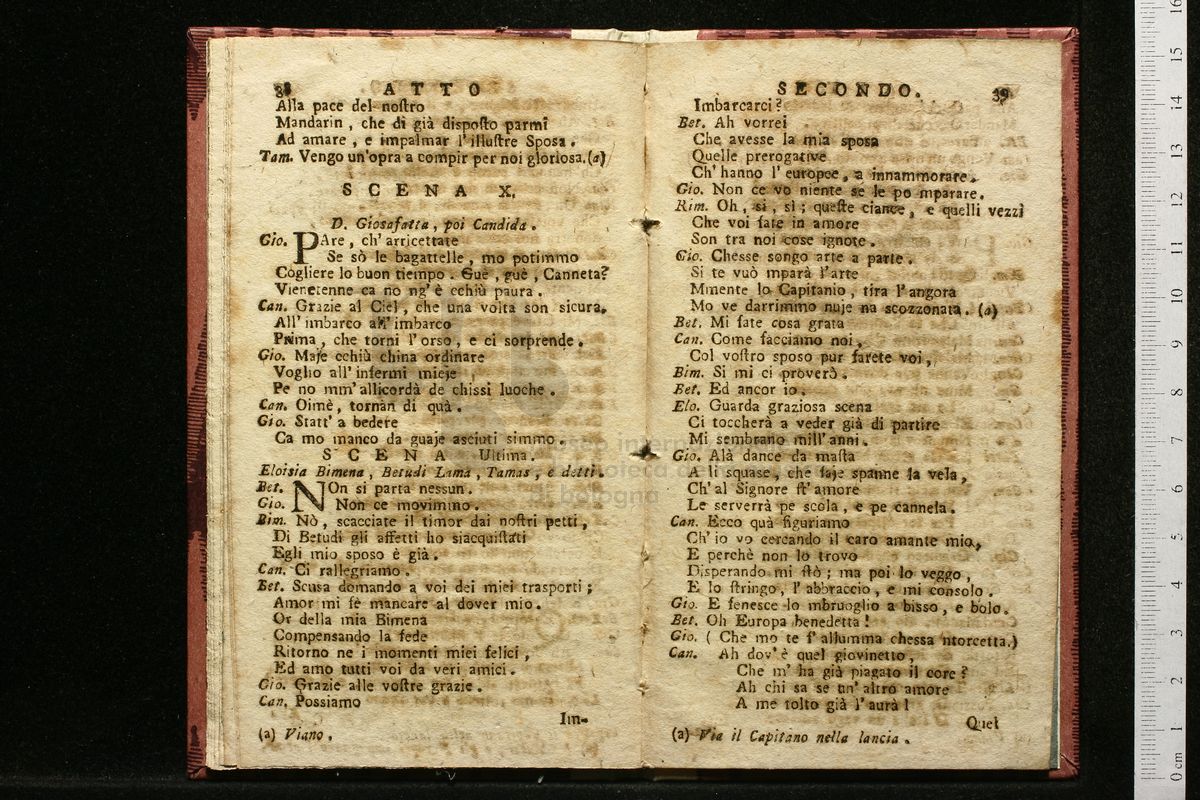 38 ATTO
Alla pace del noſtro
Mandarin, che di già diſpoſto parmi
Ad amare, e impalmar l'illuſtre Sposa.
Tam. Vengo un'opra a compir per noi glorioſa.(a)
SCENA X.
D. Gioſafatta, poi Candida.
Gio. PAre, ch'arricettate
Se sò le bagattelle, mo potimmo
Cogliere lo buon tiempo. Guè, guè, Canneta?
Vienetenne ca no ng'è cchiù paura.
Can. Grazie al Ciel, che una volta son sicura.
All'imbarco all'imbarco
Prima, che torni l'orso, e ci sorprende.
Gio. Maje cchiù china ordinare
Voglio all'infermi mieje
Pe no mm'allicordà de chissi luoche.
Can. Oimè, tornan di quà.
Gio. Statt'a bedere
Ca mo manco da guaje asciuti simmo.
SCENA Ultima.
Eloisia Bimena, Betudi Lama, Tamas, e detti.
Bet. NOn si parta nessun.
Gio. Non ce movimmo.
Bim. Nò, scacciate il timor dai noſtri petti,
Di Betudi gli affetti ho siacquiſtati
Egli mio sposo è già.
Can. Ci rallegriamo.
Bet. Scusa domando a voi dei miei trasporti;
Amor mi fè mancare al dover mio.
Or della mia Bimena
Compensando la fede
Ritorno ne i momenti miei felici,
Ed amo tutti voi da veri amici.
Gio. Grazie alle voſtre grazie.
Can. Possiamo
Im-
(a) Viano.
SECONDO. 39
Imbarcarci?
Bet. Ah vorrei
Che avesse la mia sposa
Quelle prerogative
Ch'hanno l'europee, a innammorare.
Gio. Non ce vo niente se le po mparare.
Bim. Oh, sì, sì; queſte ciance, e quelli vezzi
Che voi fate in amore
Son tra noi cose ignote.
Gio. Chesse songo arte a parte.
Si te vuò imparà l'arte
Mmente lo Capitanio, tira l'angora
Mo ve darrimmo nuje na scozzonata. (a)
Bet. Mi fate cosa grata
Can. Come facciamo noi,
Col voſtro sposo pur farete voi,
Bim. Si mi ci proverò.
Bet. Ed ancor io.
Elo. Guarda graziosa scena
Ci toccherà a veder già di partire
Mi sembrano mill'anni.
Gio. Alà dance da maſta
A li squase, che faje spanne la vela,
Ch'al Signore ſt'amore
Le serverrà pe scola, e pe cannela.
Can. Ecco quà figuriamo
Ch'io vo cercando il caro amante mio,
E perchè non lo trovo
Disperando mi ſtò; ma poi lo veggo,
E lo ſtringo, l'abbraccio, e mi consolo.
Gio. E fenesce lo mbruoglio a bisso, e bolo.
Bet. Oh Europa benedetta!
Gio. (Che mo te f'allumma chessa ntorcetta.)
Can. Ah dov'è quel giovinetto,
Che m'ha già piagato il core?
Ah chi sa se un'altro amore
A me tolto già l'aurà!
Quel
(a) Via il Capitano nella lancia.